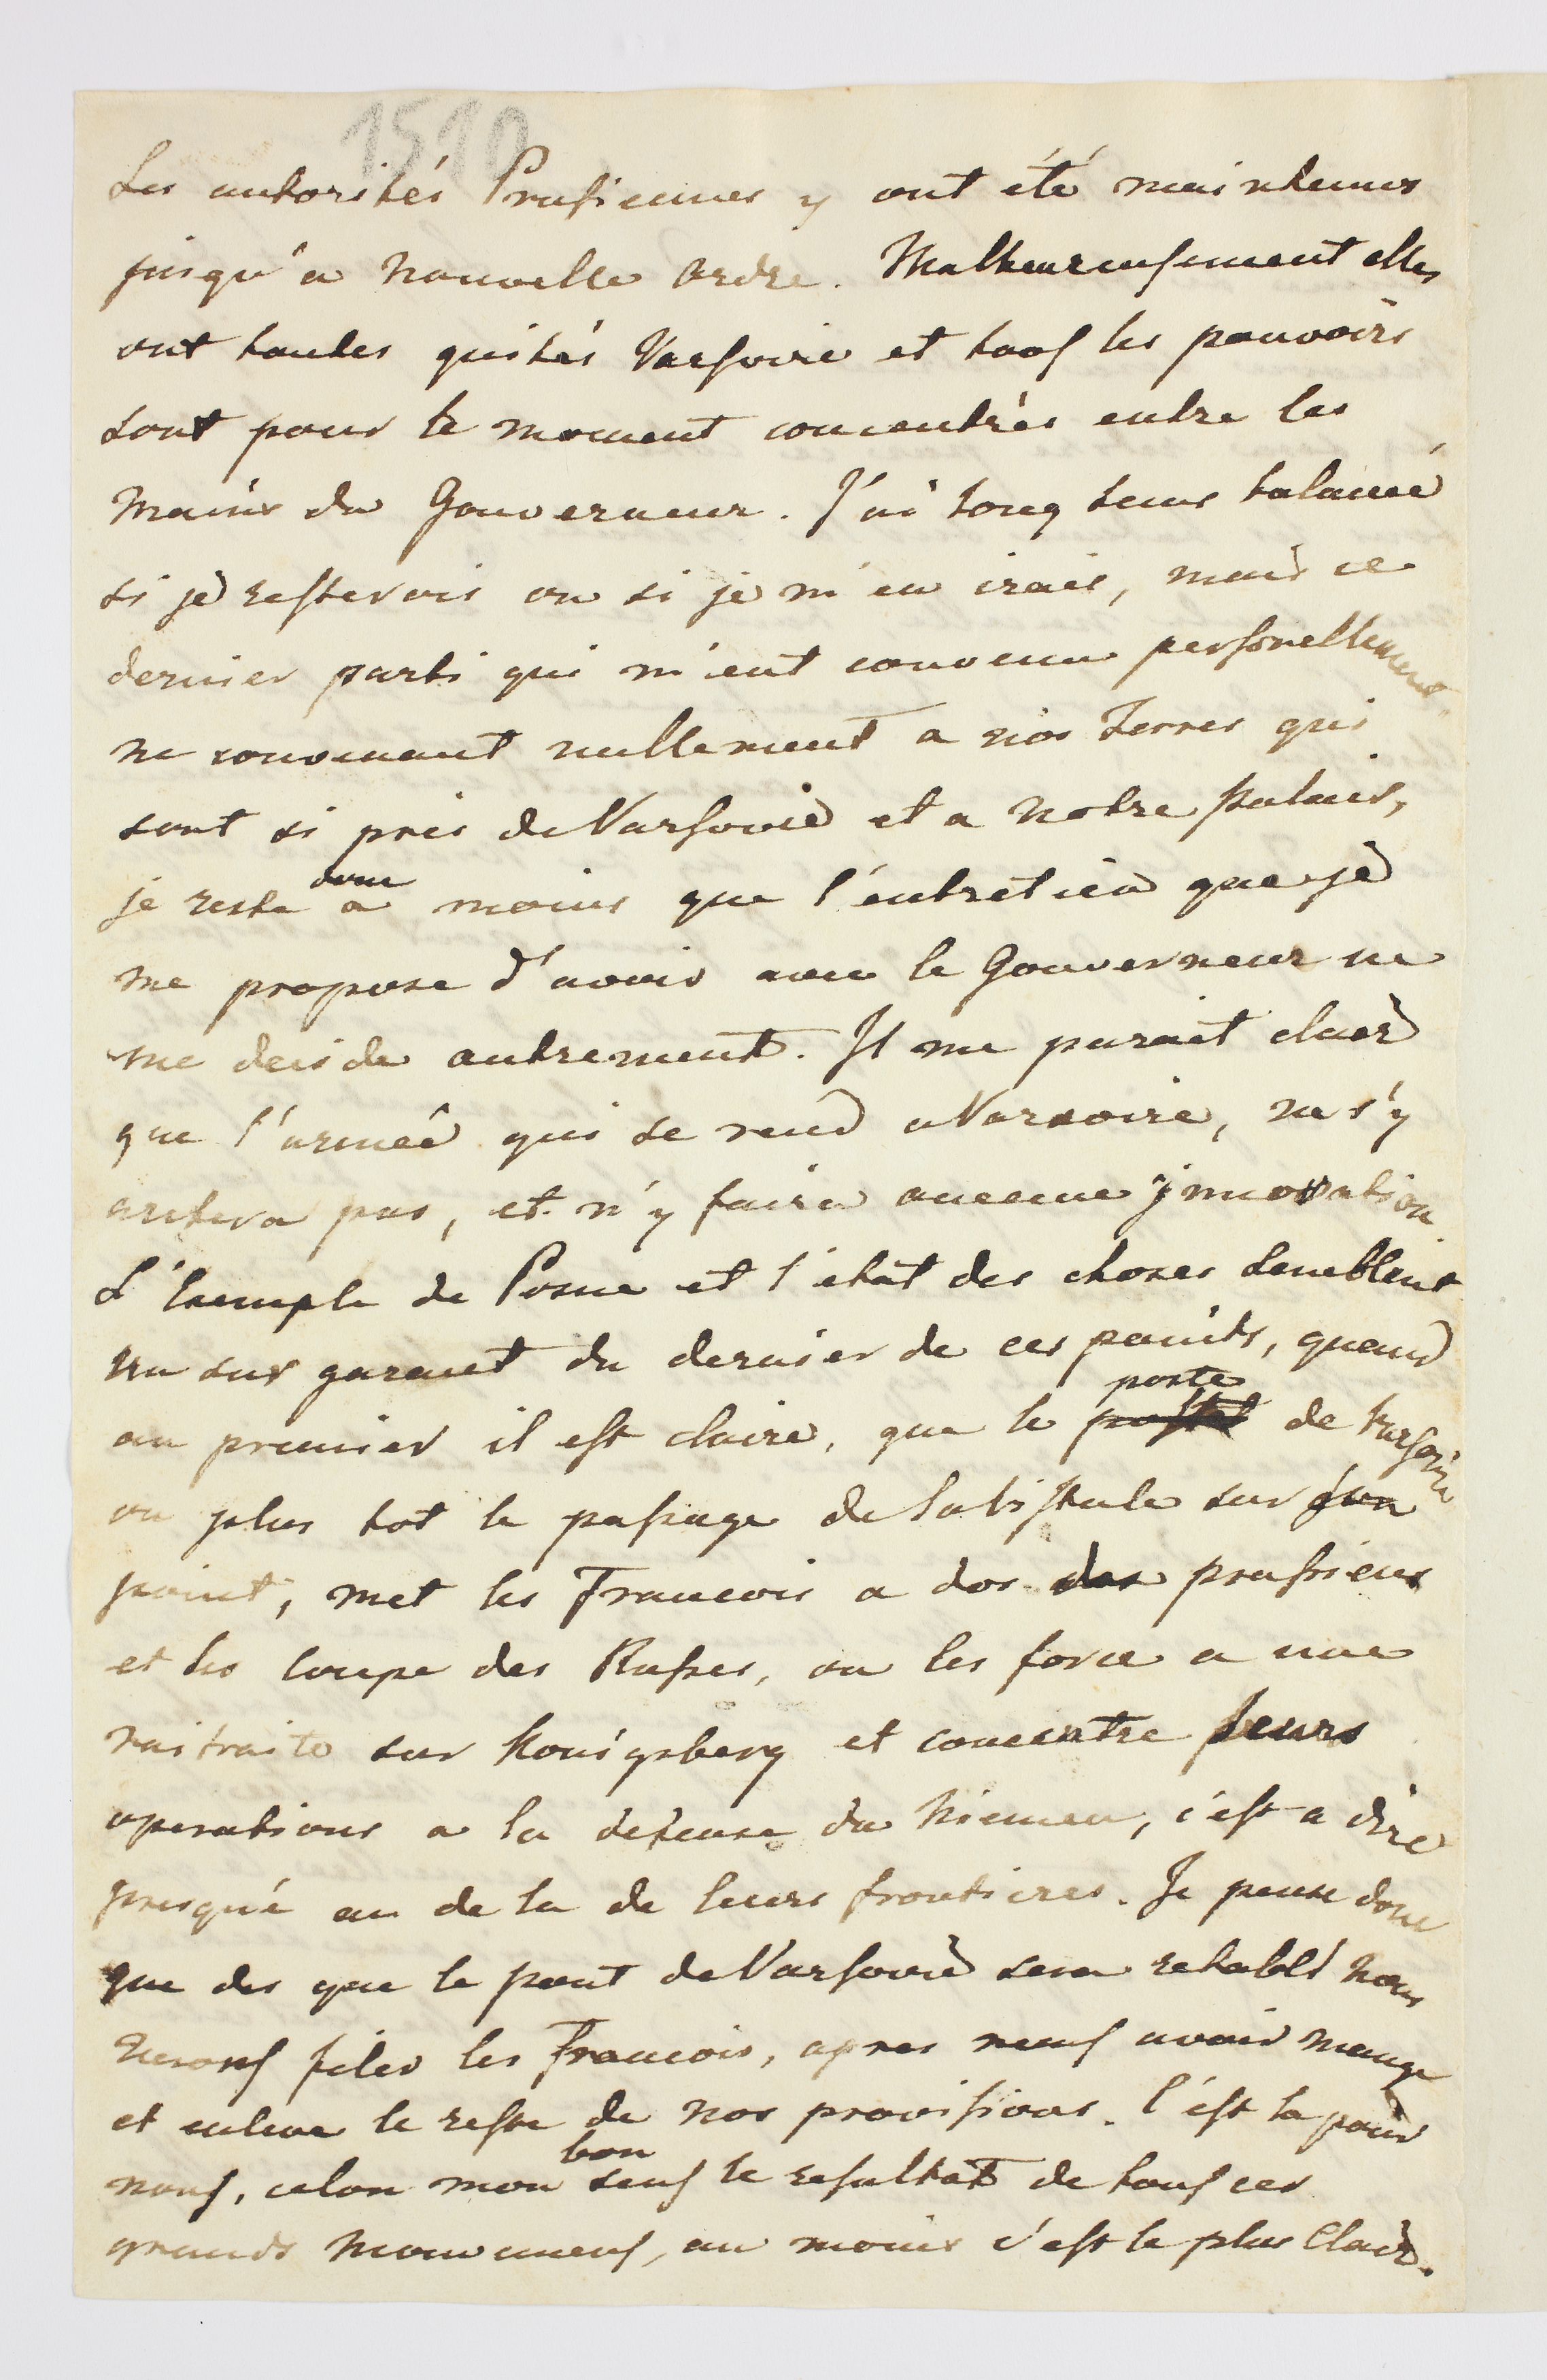 1510
Les autorités Prussiennes y ont été maintenues
jusqu'a nouvelle ordre. Malheureusement elles
ont toutes quités Varsovie et tous les pouvoirs
sont pour le moment concentrés entre les
mains du Gouverneur. J'ai long tems balancé
si je resterois ou si je m'en irais, mais ce
dernier parti qui m'eut convenu personellement
ne convenant nullement a nos Terres qui
sont si près de Varsovie et a notre palais,
donc
je reste a moins que l'entretien que je
me propose d'avoir avec le Gouverneur ne
me decide autrement. Il me parait clair
que l'armée qui se rend a Varsovie, ne s'y
aretera pas, et n'y faira aucune jnnovation
L'Exemple de Posne et l'état des choses semblent
un sur garant du dernier de ces points, quand
poste
au premier il est claire, que le de Varsovie
ou plus tot le passage de la Vistule sur
point, met les Francois a dos des prussiens
et les coupe des Russes, ou les force a une
raitraite sur Konigsberg et concentre leurs
operations a la defense du Niemen, c'est a dire
presqué au de la de leurs frontieres. Je pense donc
que des que le pont de Varsovie sera retabli nous
verons filer les Francois, apres nous avoir mangé
et enleve le reste de nos provisions. C'est la pour
bon
nous, celon mon sens le resultat de tous ces
grands mouvemens, au moins c'est le plus Clair.